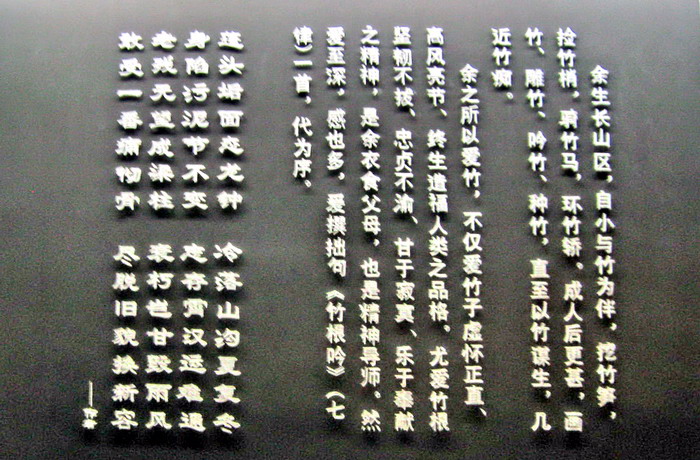 余生长山区，自小与竹为伴，挖竹笋，
捡竹梢，骑竹马，环竹轿，成人后更甚，画
竹、雕竹、吟竹、种竹，直至以竹谋生，几
近竹痴。
余之所以爱竹，不仅爱竹子虚怀正直、
高风亮节、终生造福人类之品格，尤爱竹根
坚韧不拔、忠贞不渝、甘于寂寞、乐于奉献
之精神，是余衣食父母，也是精神导师。然
爱至深，感也多，爰撰拙句《竹根吟》（七
律）一首，代为序。
蓬头垢面忑龙钟 冷落山沟夏复冬
身陷污泥节不变 志存霄汉运难通
老残无望成梁柱 衰朽岂甘毁雨风
敢受一番痛彻骨 尽脱旧貌换新容